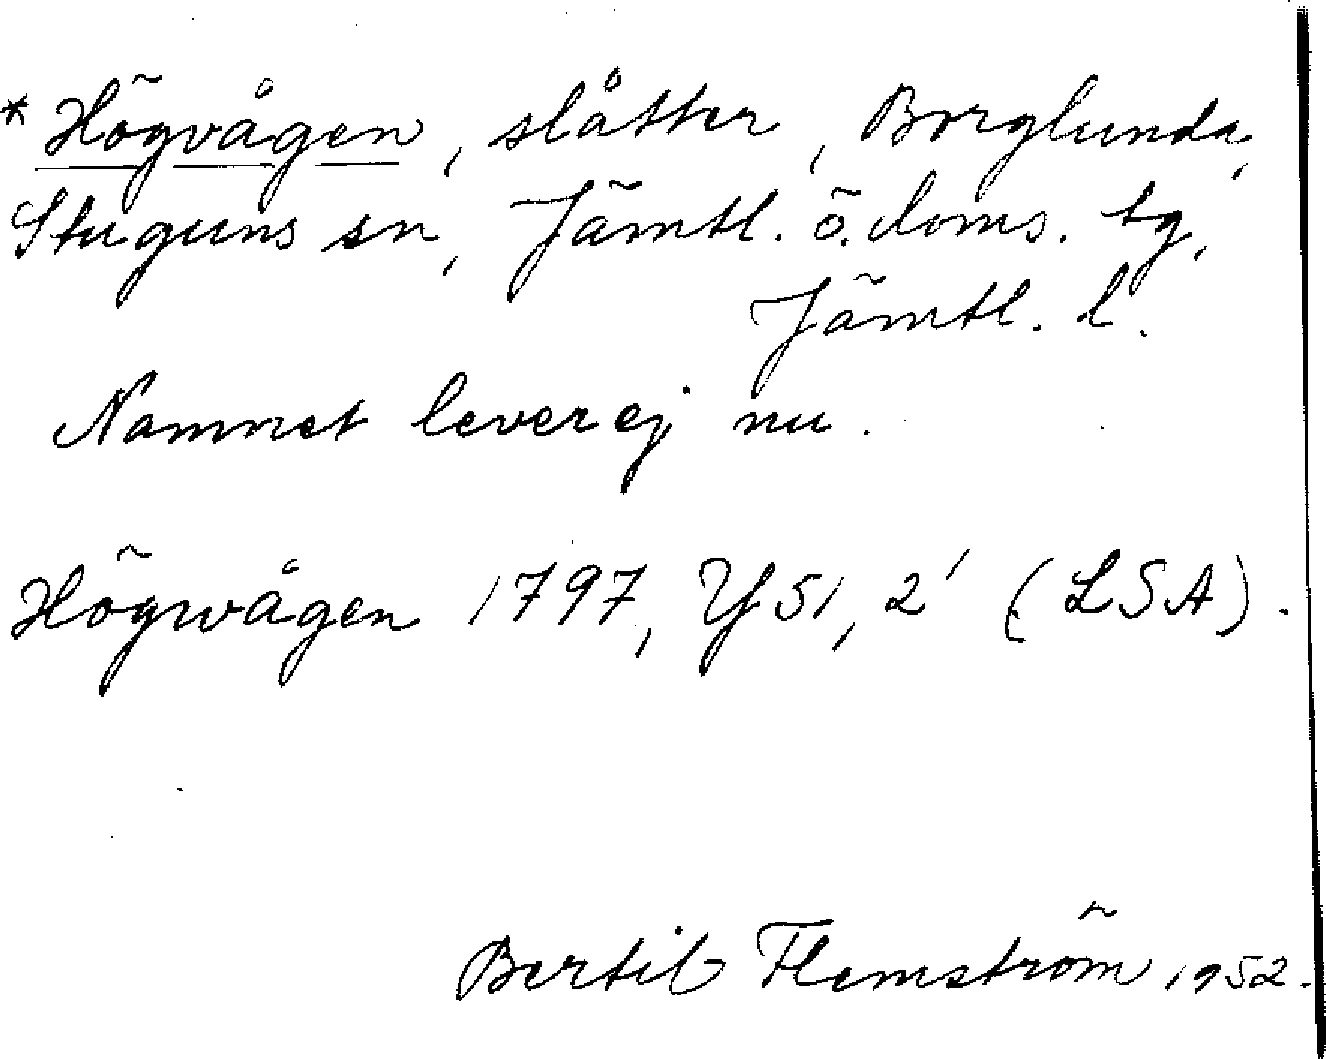 * Högvågen, slåtter, Borglunda,
Stuguns sn, Jämtl. ö. doms. tg,
Jämtl. l.
Namnet lever ej nu.
Högwågen 1797, Y 51, 2' (LSA).
Bertil Flemström 1952.